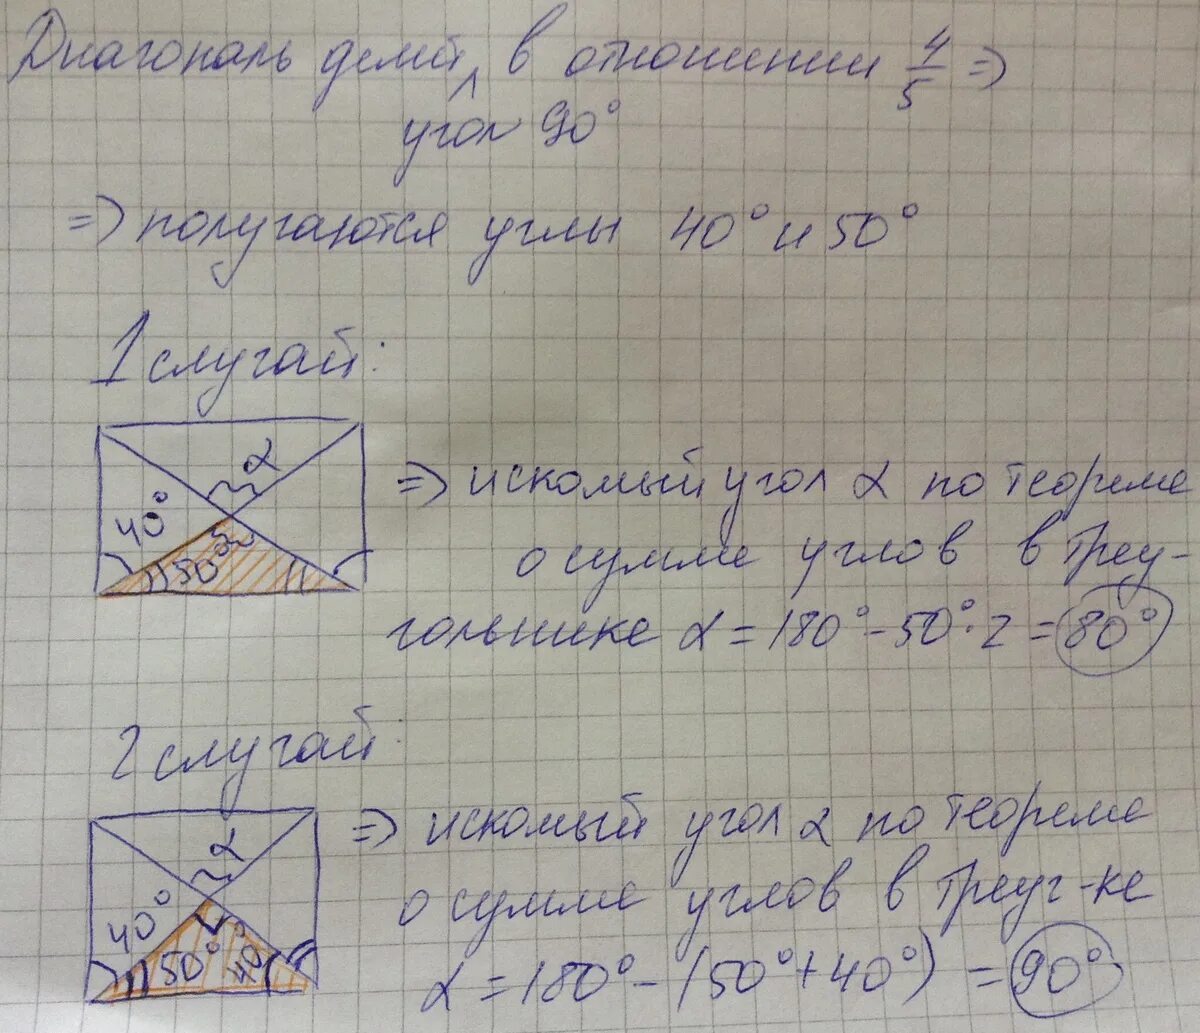 Диагональ делит в отношении 4/5 =>
угол 90°
=> получаются углы 40° и 50°
1 случай:
α
40°
50°
=> искомый угол α по теореме
о сумме углов в треу-
гольнике α = 180° - 50°·2 = 80°
2 случай:
α
40°
50°
40°
=> искомый угол α по теореме
о сумме углов в треуг-ке
α = 180° - (50° + 40°) = 90°